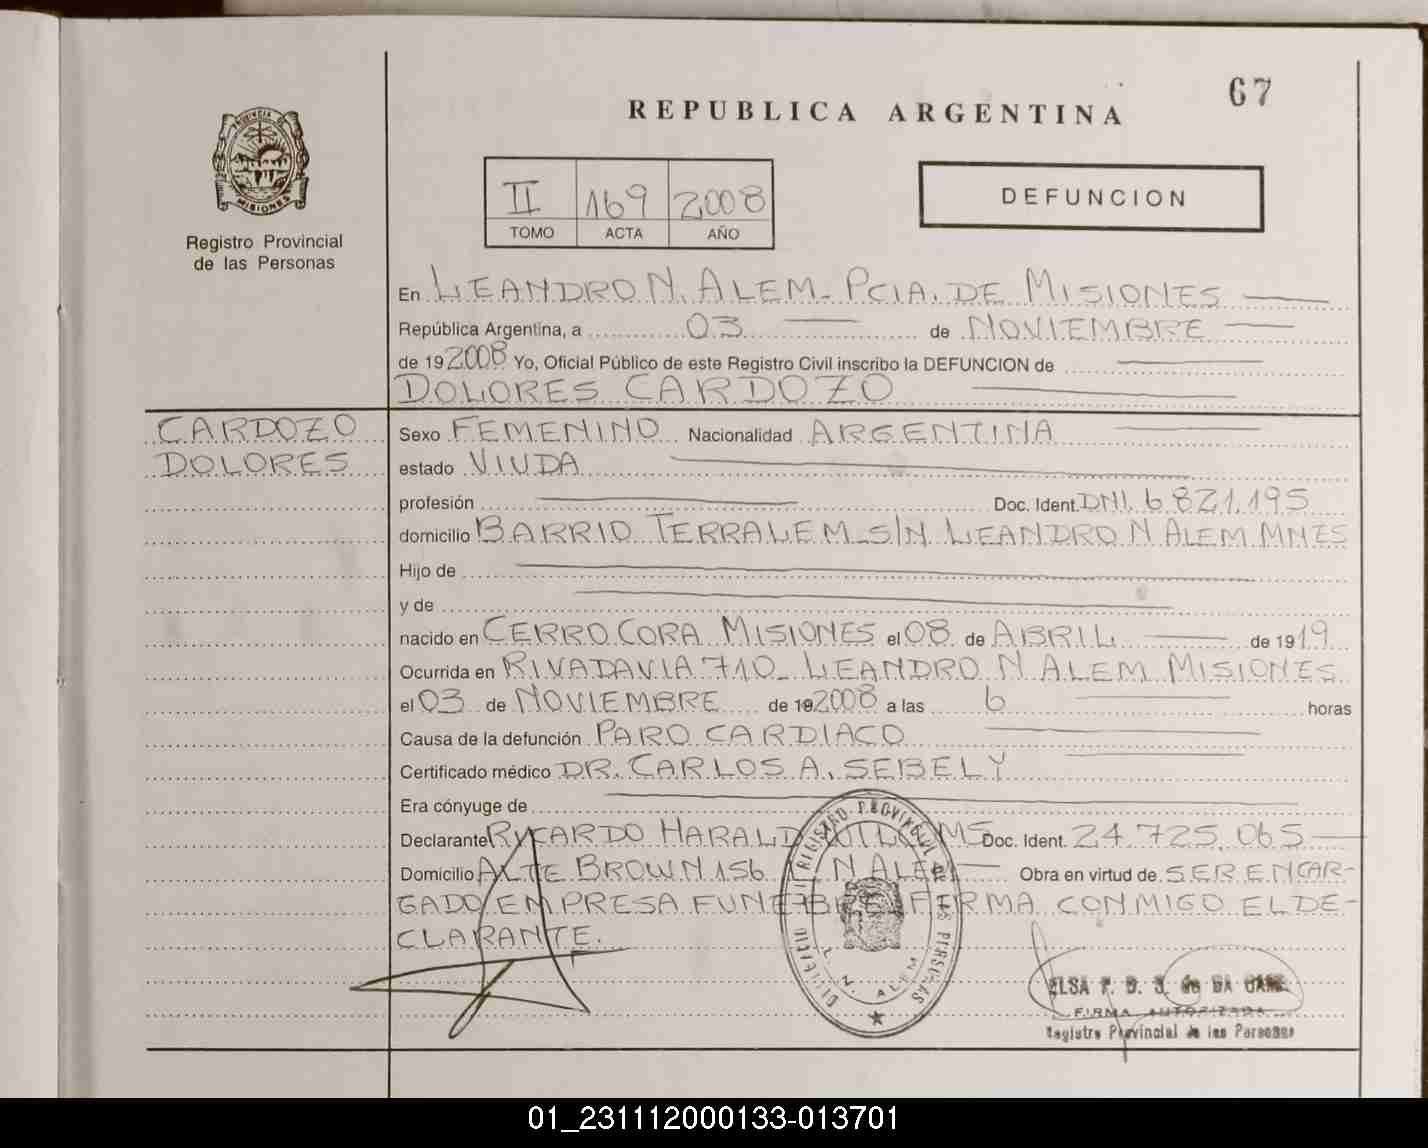 67
REPUBLICA ARGENTINA
PROVINCIA DE
MISIONES
Registro Provincial
de las Personas
II 169 2008
TOMO ACTA AÑO
DEFUNCION
En LEANDRO N. ALEM - PCIA. DE MISIONES
República Argentina, a 03 de NOVIEMBRE
de 19 2008 Yo, Oficial Público de este Registro Civil inscribo la DEFUNCION de
DOLORES CARDOZO
CARDOZO
DOLORES
Sexo FEMENINO Nacionalidad ARGENTINA
estado VIUDA
profesión Doc. Ident. DNI. 6 821.195
domicilio BARRIO TERRALEM - S/N LEANDRO N ALEM MNES
Hijo de
y de
nacido en CERRO CORA MISIONES el 08 de ABRIL de 19 19
Ocurrida en RIVADAVIA 710 - LEANDRO N ALEM MISIONES
el 03 de NOVIEMBRE de 19 2008 a las 6 horas
Causa de la defunción PARO CARDIACO
Certificado médico DR. CARLOS A. SEBELY
Era cónyuge de
Declarante RICARDO HARALD Doc. Ident. 24.725.065
Domicilio ALTE BROWN 156 L N ALEM Obra en virtud de SER ENCAR-
GADO EMPRESA FUNEBRE FIRMA CONMIGO EL DE-
CLARANTE.
REGISTRO PROVINCIAL DE LAS PERSONAS
L. N. ALEM
ELSA F. D. S. de
FIRMA AUTORIZADA
Registro Provincial de las Personas
01_231112000133-013701